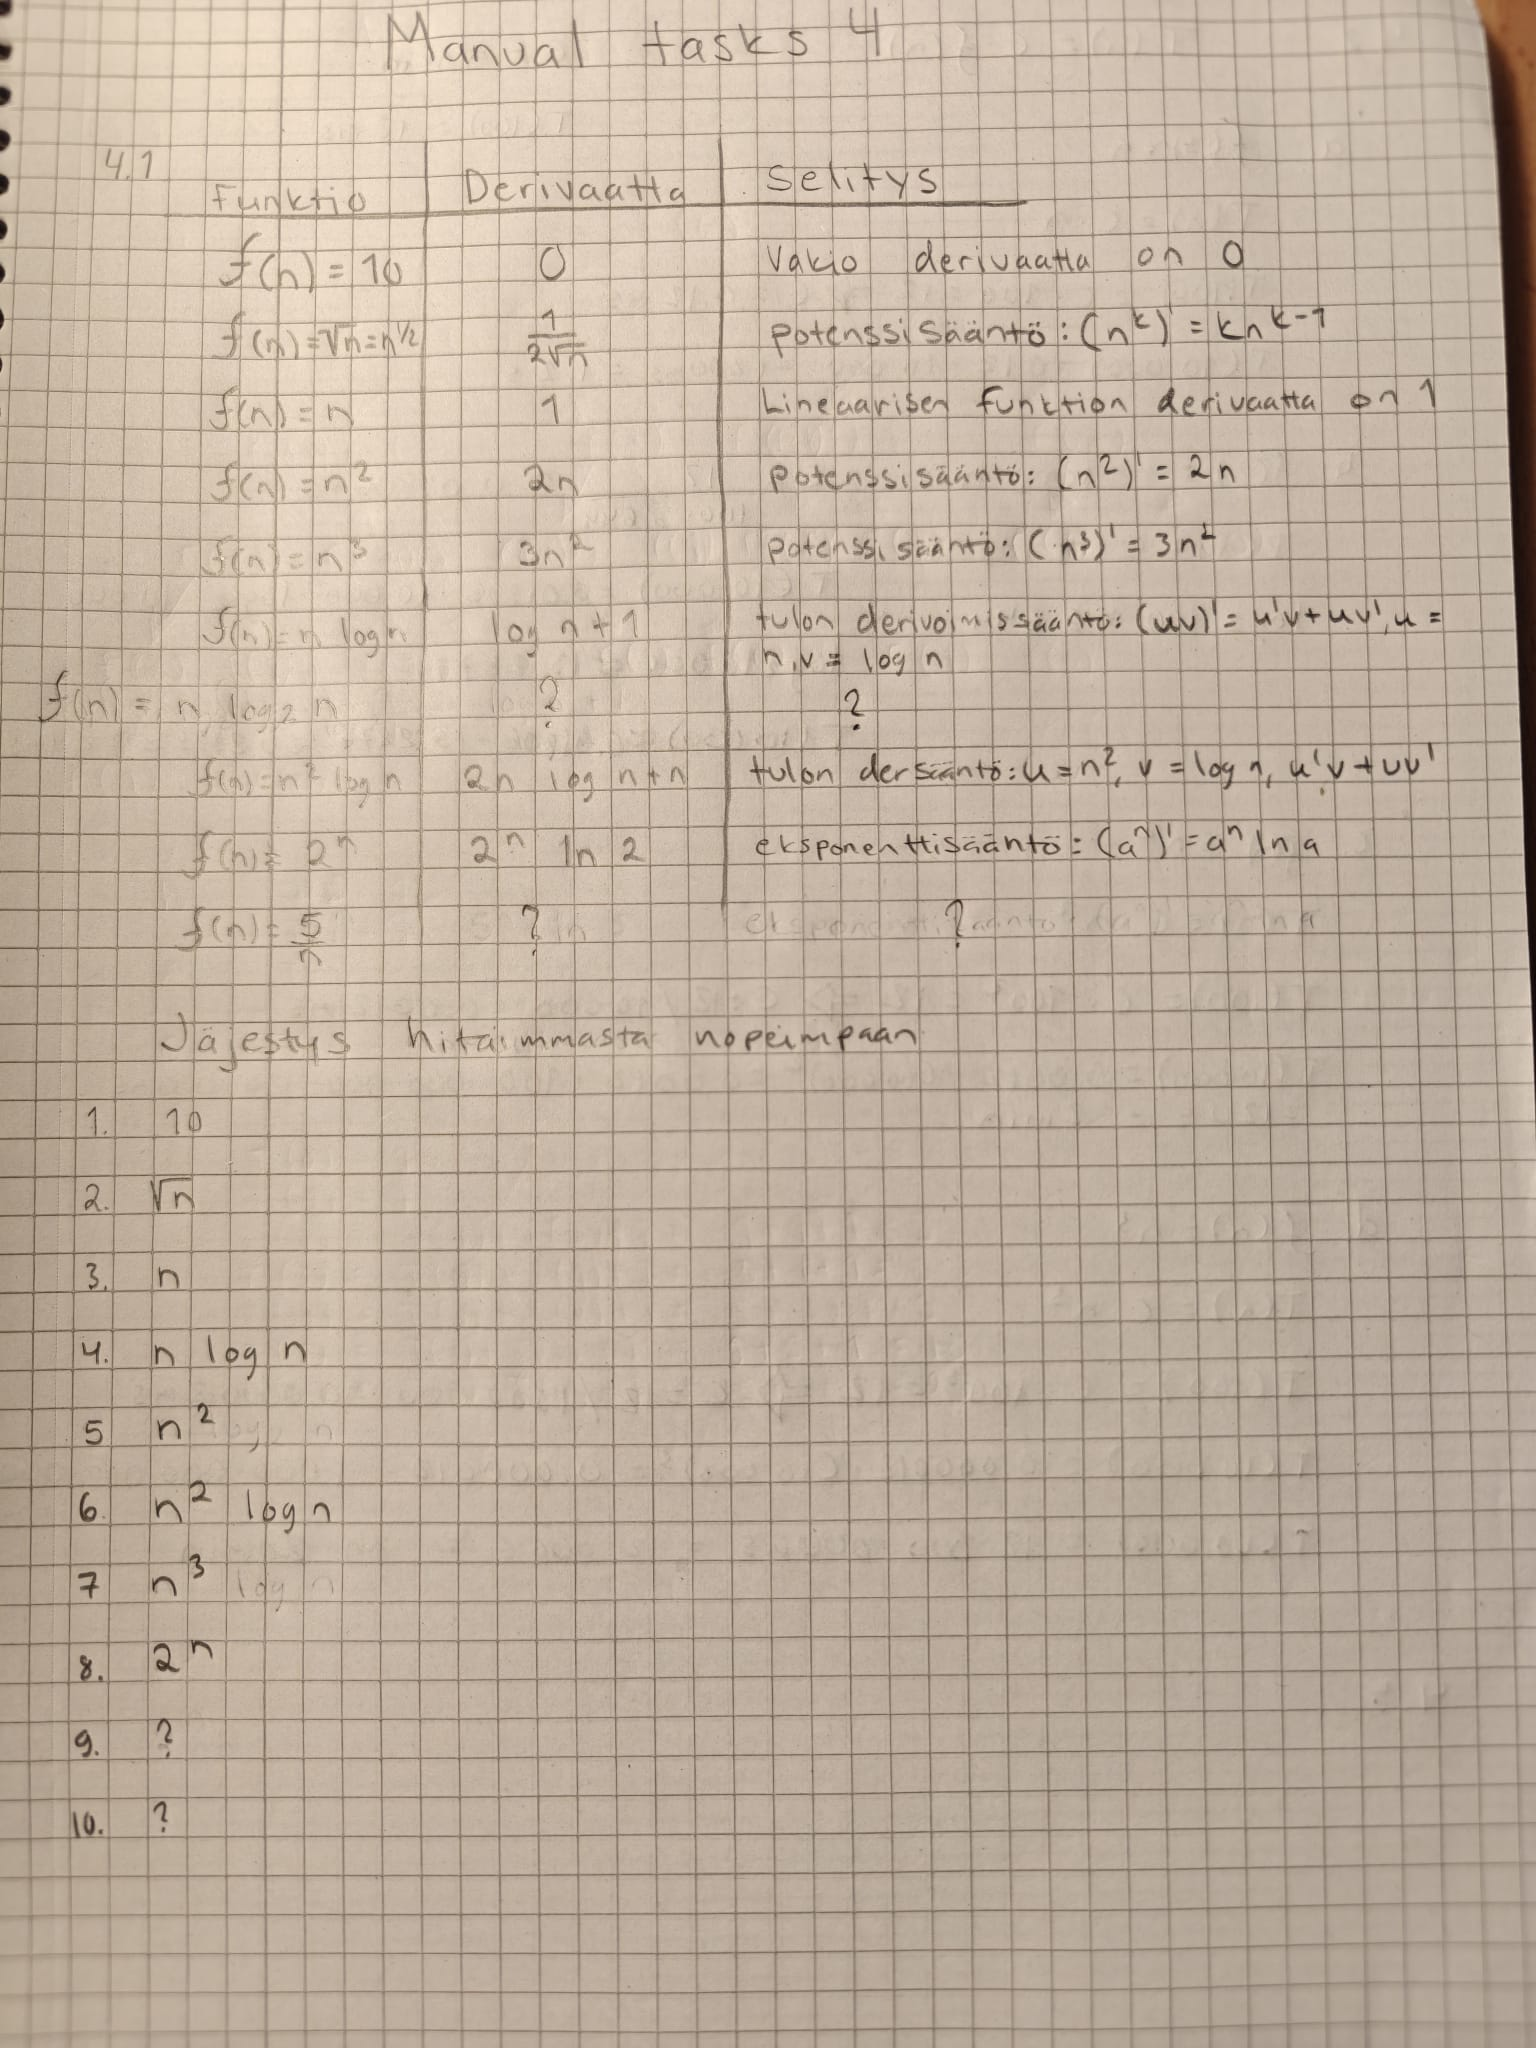 Manual tasks 4
4.1
Funktio Derivaatta Selitys
f(n) = 10 0 Vakio derivaatta on 0
f(n) = √n = n^1/2 1/2√n potenssisääntö: (n^k)' = kn^k-1
f(n) = n 1 Lineaarisen funktion derivaatta on 1
f(n) = n² 2n potenssisääntö: (n²)' = 2n
f(n) = n³ 3n² potenssisääntö: (n³)' = 3n²
f(n) = n log n log n + 1 tulon derivoimissääntö: (uv)' = u'v + uv', u =
n, v = log n
f(n) = n log₂ n ? ?
f(n) = n² log n 2n log n + n tulon dersääntö: u = n², v = log n, u'v + uv'
f(n) = 2^n 2^n ln 2 eksponenttisääntö: (a^n)' = a^n ln a
f(n) = 5/n ? ?
Jäjestys hitaimmasta nopeimpaan
1. 10
2. √n
3. n
4. n log n
5 n²
6. n² log n
7 n³
8. 2^n
9. ?
10. ?